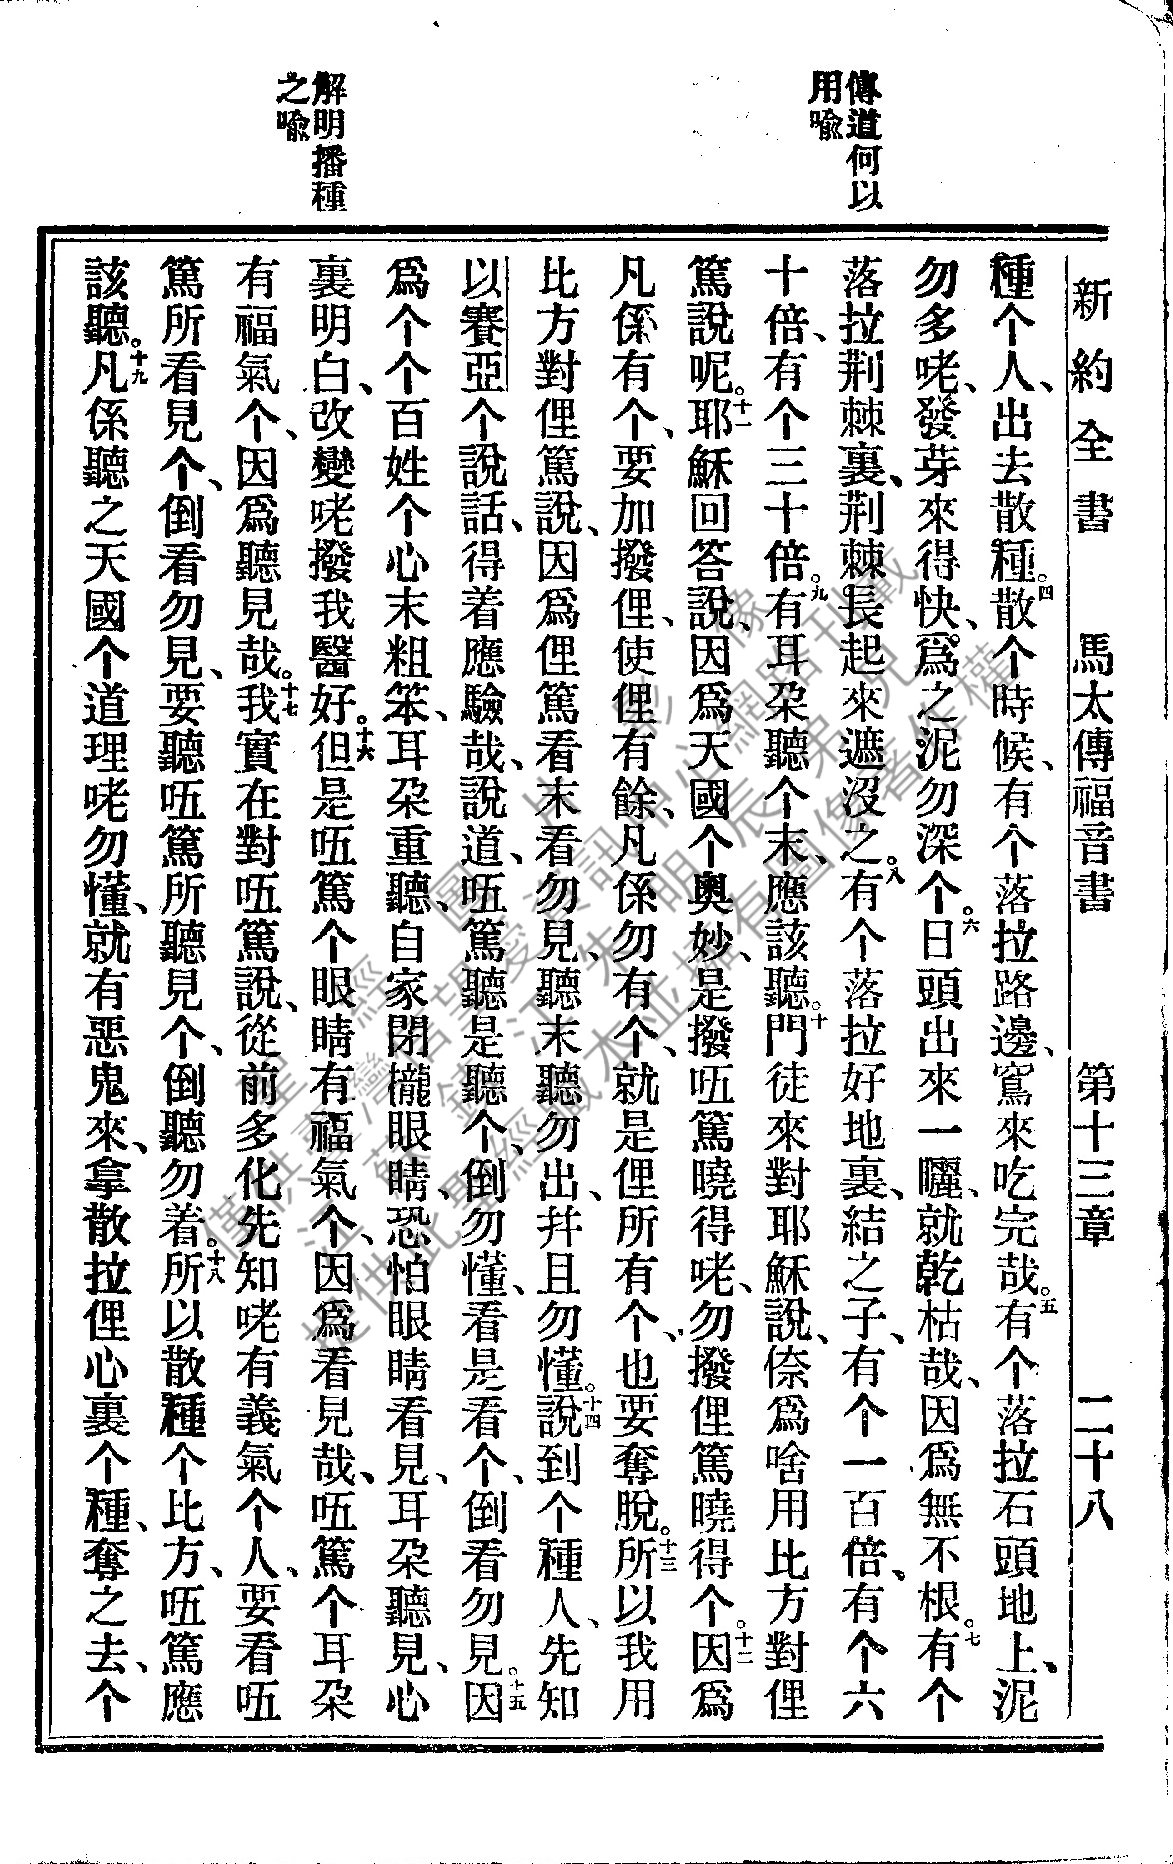 新約全書 馬太傳福音書 第十三章 二十八
傳道何以
用喻
解明播種
之喻
種个人、出去散種。四散个時候、有个落拉路邊、鴐來吃完哉。五有个落拉石頭地上、泥
勿多咾、發芽來得快、爲之泥勿深个。六日頭出來一曬、就乾枯哉、因爲無不根。七有个
落拉荆棘裏、荆棘長起來遮沒之。八有个落拉好地裏、結之子、有个一百倍、有个六
十倍、有个三十倍。九有耳朶聽个末、應該聽。十門徒來對耶穌說、倷爲啥用比方對俚
篤說呢。十一耶穌回答說、因爲天國个奧妙、是撥㕶篤曉得咾、勿撥俚篤曉得个。十二因爲
凡係有个、要加撥俚、使俚有餘、凡係勿有个、就是俚所有个、也要奪脫。十三所以我用
比方對俚篤說、因爲俚篤看末看勿見、聽末聽勿出、幷且勿懂。十四說到个種人、先知
以賽亞个說話、得着應驗哉、說道、㕶篤聽是聽个、倒勿懂、看是看个、倒看勿見。十五因
爲个个百姓个心末粗笨、耳朶重聽、自家閉櫳眼睛、恐怕眼睛看見、耳朶聽見、心
裏明白、改變咾撥我醫好。十六但是㕶篤个眼睛有福氣个、因爲看見哉、㕶篤个耳朶
有福氣个、因爲聽見哉。十七我實在對㕶篤說、從前多化先知咾有義氣个人、要看㕶
篤所看見个、倒看勿見、要聽㕶篤所聽見个、倒聽勿着。十八所以散種个比方、㕶篤應
該聽。十九凡係聽之天國个道理咾勿懂、就有惡鬼來、拿散拉俚心裏个種、奪之去、个
聖經圖書影像
僅供臺灣信望愛資訊中心網路刊載
江蘇鎮江朱明辰弟兄
提供此聖經藏本並擁有圖像著作權